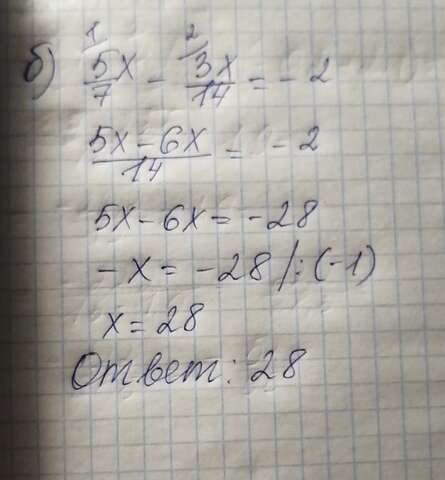 1 2
б) 5/7 x - 3x/14 = -2
5x-6x/14 = -2
5x-6x=-28
-x=-28 /:(-1)
x=28
Ответ: 28